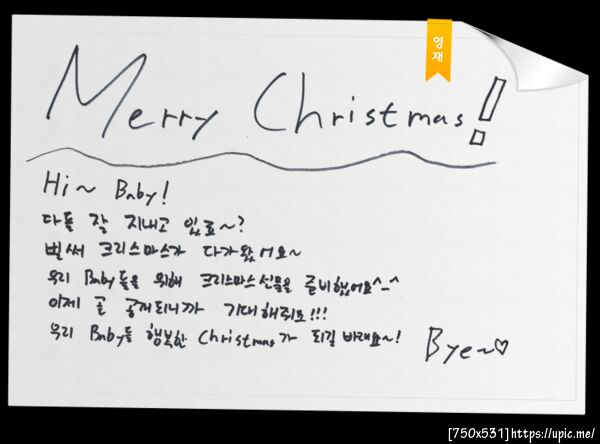 영재
Merry Christmas!
Hi~ Baby!
다들 잘 지내고 있죠~?
벌써 크리스마스가 다가왔어요~
우리 Baby들을 위해 크리스마스 선물을 준비했어요^_^
이제 곧 공개되니까 기대해줘요!!!
우리 Baby들 행복한 Christmas가 되길 바래요~!
Bye~♡
[750x531]https://upic.me/